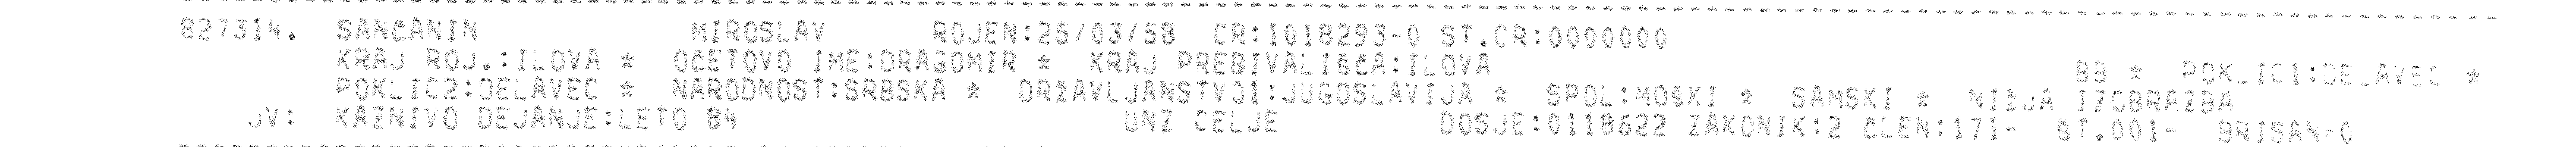 827314. SANCANIN MIROSLAV ROJEN:25/03/58 CR:1018293-0 ST.CR:0000000
KRAJ ROJ.:ILOVA * OCETOVO IME:DRAGOMIR * KRAJ PREBIVALISCA:ILOVA BB * POKLIC1:DELAVEC *
POKLIC2:DELAVEC * NARODNOST:SRBSKA * DRZAVLJANSTVO1:JUGOSLAVIJA * SPOL:MOSKI * SAMSKI * NIZJA IZOBRAZBA
JV: KAZNIVO DEJANJE:LETO 84 UNZ CELJE DOSJE:0118622 ZAKONIK:2 CLEN:171- ST.001- BRISAN-0